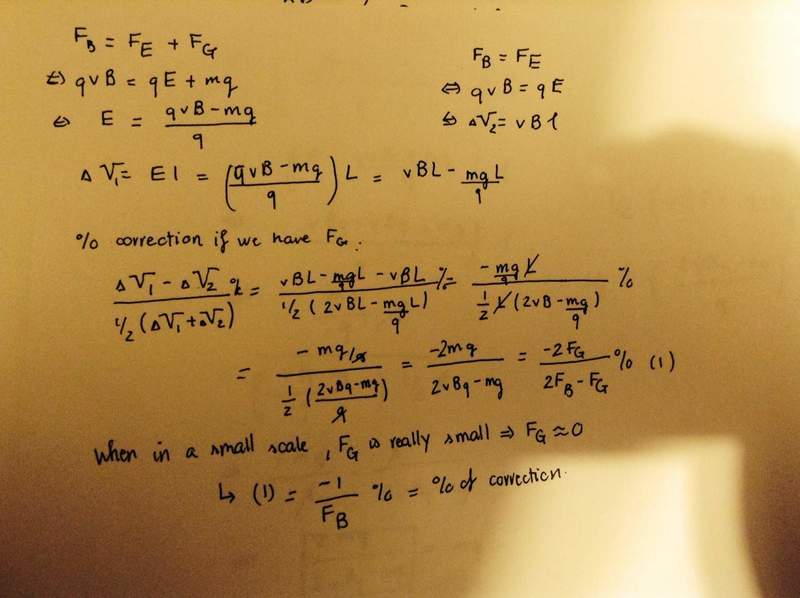 F_B = F_E + F_G
⇔ qvB = qE + mg
⇔ E = (qvB - mg)/q
F_B = F_E
⇔ qvB = qE
⇔ ΔV₂ = vBl
ΔV₁ = El = ((qvB - mg)/q) L = vBL - mgL/q
% correction if we have F_G:
(ΔV₁ - ΔV₂)/(1/2 (ΔV₁ + ΔV₂)) % = (vBL - mgL/q - vBL)/(1/2 (2vBL - mgL/q)) % = (-mg/q L)/(1/2 L (2vB - mg/q)) %
= (-mg/q)/(1/2 ((2vBq - mg)/q)) = -2mg/(2vBq - mg) = -2F_G/(2F_B - F_G) % (1)
When in a small scale, F_G is really small ⇒ F_G ≈ 0
↳ (1) = -1/F_B % = % of correction.